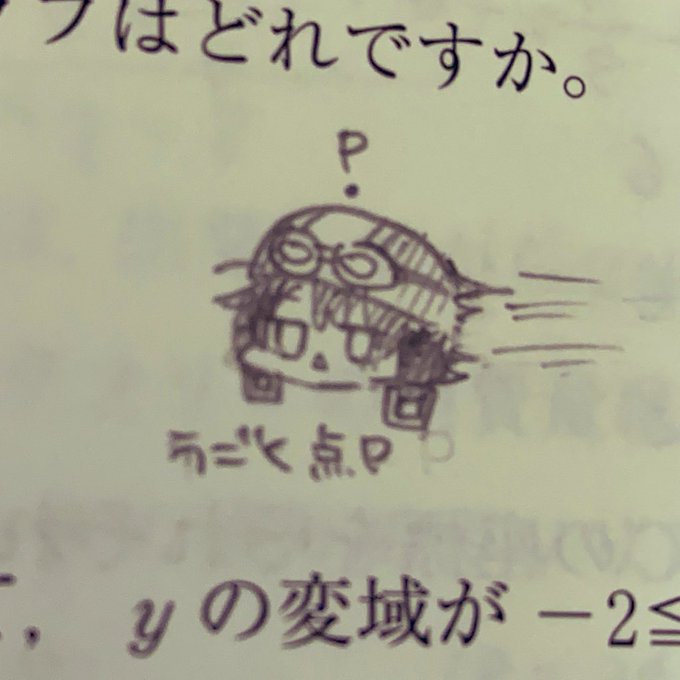 フはどれですか。
P
うごく点P
y の変域が −2≦